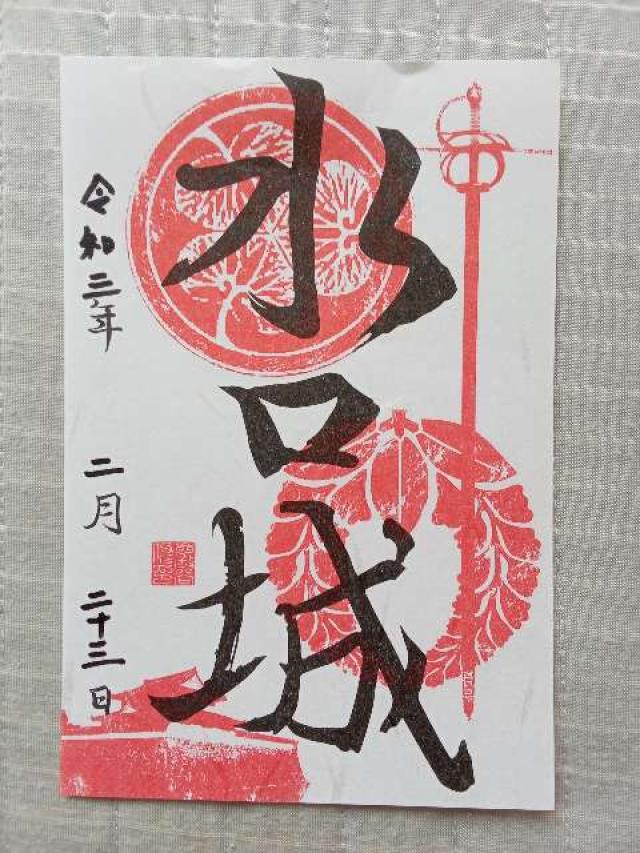 水口城
令和三年 二月 二十三日